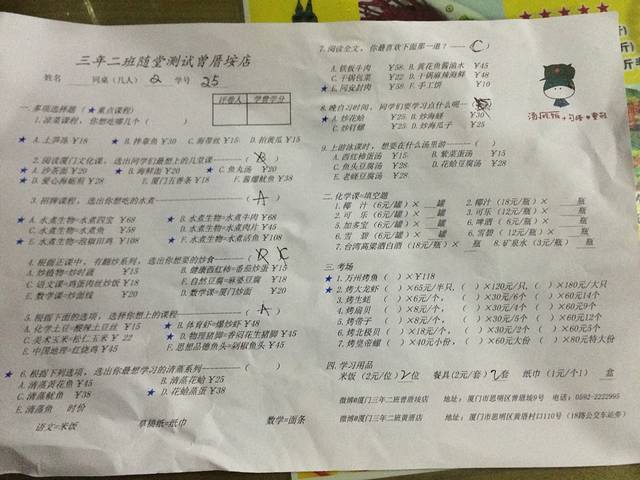 三年二班随堂测试曾厝垵店
姓名 同桌(几人) 2 学号 25
评卷人 学费学分
一.多项选择题(★重点课程)
1.凉菜课程,你想吃哪几个( )
★ A.土笋冻 ¥18 ★ B.拌章鱼 ¥30 C.海带丝 ¥15 D.拍黄瓜 ¥15
2.阅读厦门文化课,选出同学们最想上的几堂课----------( B )
★ A.沙茶面 ¥20 ★ B.海鲜面 ¥20 ★ C.鱼丸汤 ¥20
★ D.爱心海蛎煎 ¥28 E.厦门五香条 ¥18 F.酱爆鱿鱼 ¥38
3.招牌课程,选出你想吃的水煮----------( A )
★ A.水煮生物=水煮四宝 ¥68 ★ B.水煮生物=水煮牛肉 ¥68
C.水煮生物=水煮鱼 ¥58 D.水煮生物=水煮肉片 ¥45
★ E.水煮生物=泡椒田鸡 ¥108 ★ F.水煮生物=水煮活鱼 ¥108
4.根据正课中,有翻炒系列,选出你想要的炒食----------( )
A.炒植物=炒时蔬 ¥15 B.健康西红柿=番茄炒蛋 ¥15
C.语文课=鸡蛋肉丝炒饭 ¥18 F.自然豆腐=麻婆豆腐 ¥18
E.数学课=炒面线 ¥20 D.数学课=厦门炒面 ¥20
5.根据下面的选项,选择你想上的课程----------( A )
A.化学土豆=酸辣土豆丝 ¥15 ★ B.体育虾=爆炒虾 ¥48
C.美术玉米=松仁玉米 ¥22 ★ D.物理猪脚=香焖花生猪脚 ¥45
E.中国地理=红烧鸡 ¥45 F.思想品德鱼头=剁椒鱼头 ¥45
★ 6.根据下列选项,选择你最想学习的清蒸系列----------( )
A.清蒸黄花鱼 ¥45 B.清蒸花蛤 ¥25
C.清蒸鱿鱼 ¥38 ★ D.花蛤蒸蛋 ¥38
E.清蒸鱼 时价
语文=米饭 草稿纸=纸巾 数学=面条
7.阅读全文,你最喜欢下面那一道?----( C )
A.铁板牛肉 ¥58 B.黄花鱼酱油水 ¥45
C.干锅包菜 ¥22 D.干锅麻辣海鲜 ¥48
★ E.同安封肉 ¥58 F.手工饼 ¥10
8.晚自习时间,同学们要学习点什么呢---( )
★ A.炒花蛤 ¥25 B.炒海蛏 ¥30
C.炒钉螺 ¥25 D.炒海瓜子 ¥25
9.上游泳课时,想要在什么汤里游----( )
A.西红柿蛋汤 ¥15 B.紫菜蛋汤 ¥15
C.鱼头豆腐汤 ¥28 D.花蛤豆腐汤 ¥28
E.老蛏豆腐汤 ¥28
二.化学课=填空题
1.椰 汁(6元/罐)× 罐 2.椰汁(18元/瓶)× 瓶
2.可 乐(6元/罐)× 罐 3.可乐(12元/瓶)× 瓶
5.加多宝(6元/罐)× 罐 4.啤酒(6元/瓶)× 瓶
6.雪 碧(6元/罐)× 罐 6.雪碧(12元/瓶)× 瓶
7.台湾高粱酒白酒(18元/瓶)× 瓶 8.矿泉水(3元/瓶) 瓶
三.考场
★ 1.万州烤鱼( )×¥118
★ 2.烤大龙虾( )×65元/半只,( )×120元/只,( )×180元/大只
3.烤生蚝 ( )×6元/个,( )×30元/6个 ( )×60元14个
4.烤扇贝 ( )×8元/个,( )×30元/4个 ( )×60元9个
5.烤带子 ( )×8元/个,( )×30元/4个 ( )×60元12个
6.烤北极贝( )×18元/个,( )×30元/2个 ( )×60元5个
7.烤皇帝螺( )×40元小份,( )×60元大份 ( )×80元特大份
四.学习用品
米饭(2元/位)2位 餐具(2元/套)2套 纸巾(1元/个1) 盒
微博@厦门三年二班曾厝垵店 地址:厦门市思明区曾厝垵9号 电话:0592-2222995
微博@厦门三年二班黄厝店 地址:厦门市思明区黄厝村口110号(18路公交车站旁)